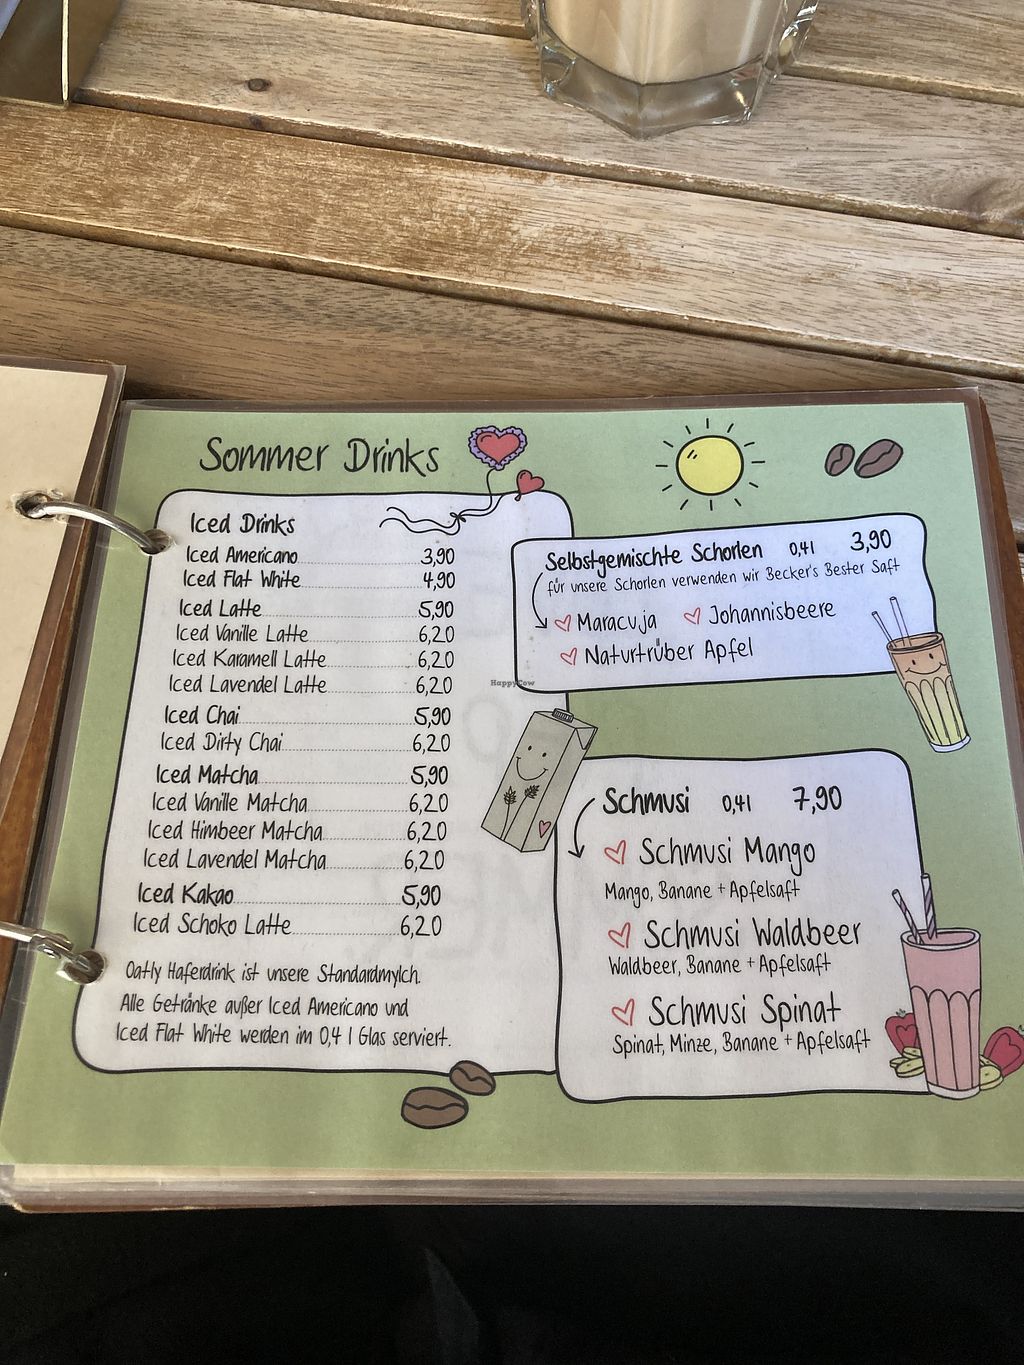 Sommer Drinks
Iced Drinks
Iced Americano 3,90
Iced Flat White 4,90
Iced Latte 5,90
Iced Vanille Latte 6,20
Iced Karamell Latte 6,20
Iced Lavendel Latte 6,20
Iced Chai 5,90
Iced Dirty Chai 6,20
Iced Matcha 5,90
Iced Vanille Matcha 6,20
Iced Himbeer Matcha 6,20
Iced Lavendel Matcha 6,20
Iced Kakao 5,90
Iced Schoko Latte 6,20
Oatly Haferdrink ist unsere Standardmylch.
Alle Getränke außer Iced Americano und
Iced Flat White werden im 0,4 l Glas serviert.
Selbstgemischte Schorlen 0,4l 3,90
für unsere Schorlen verwenden wir Becker's Bester Saft
Maracuja Johannisbeere
Naturtrüber Apfel
HappyCow
Schmusi 0,4l 7,90
Schmusi Mango
Mango, Banane + Apfelsaft
Schmusi Waldbeer
Waldbeer, Banane + Apfelsaft
Schmusi Spinat
Spinat, Minze, Banane + Apfelsaft